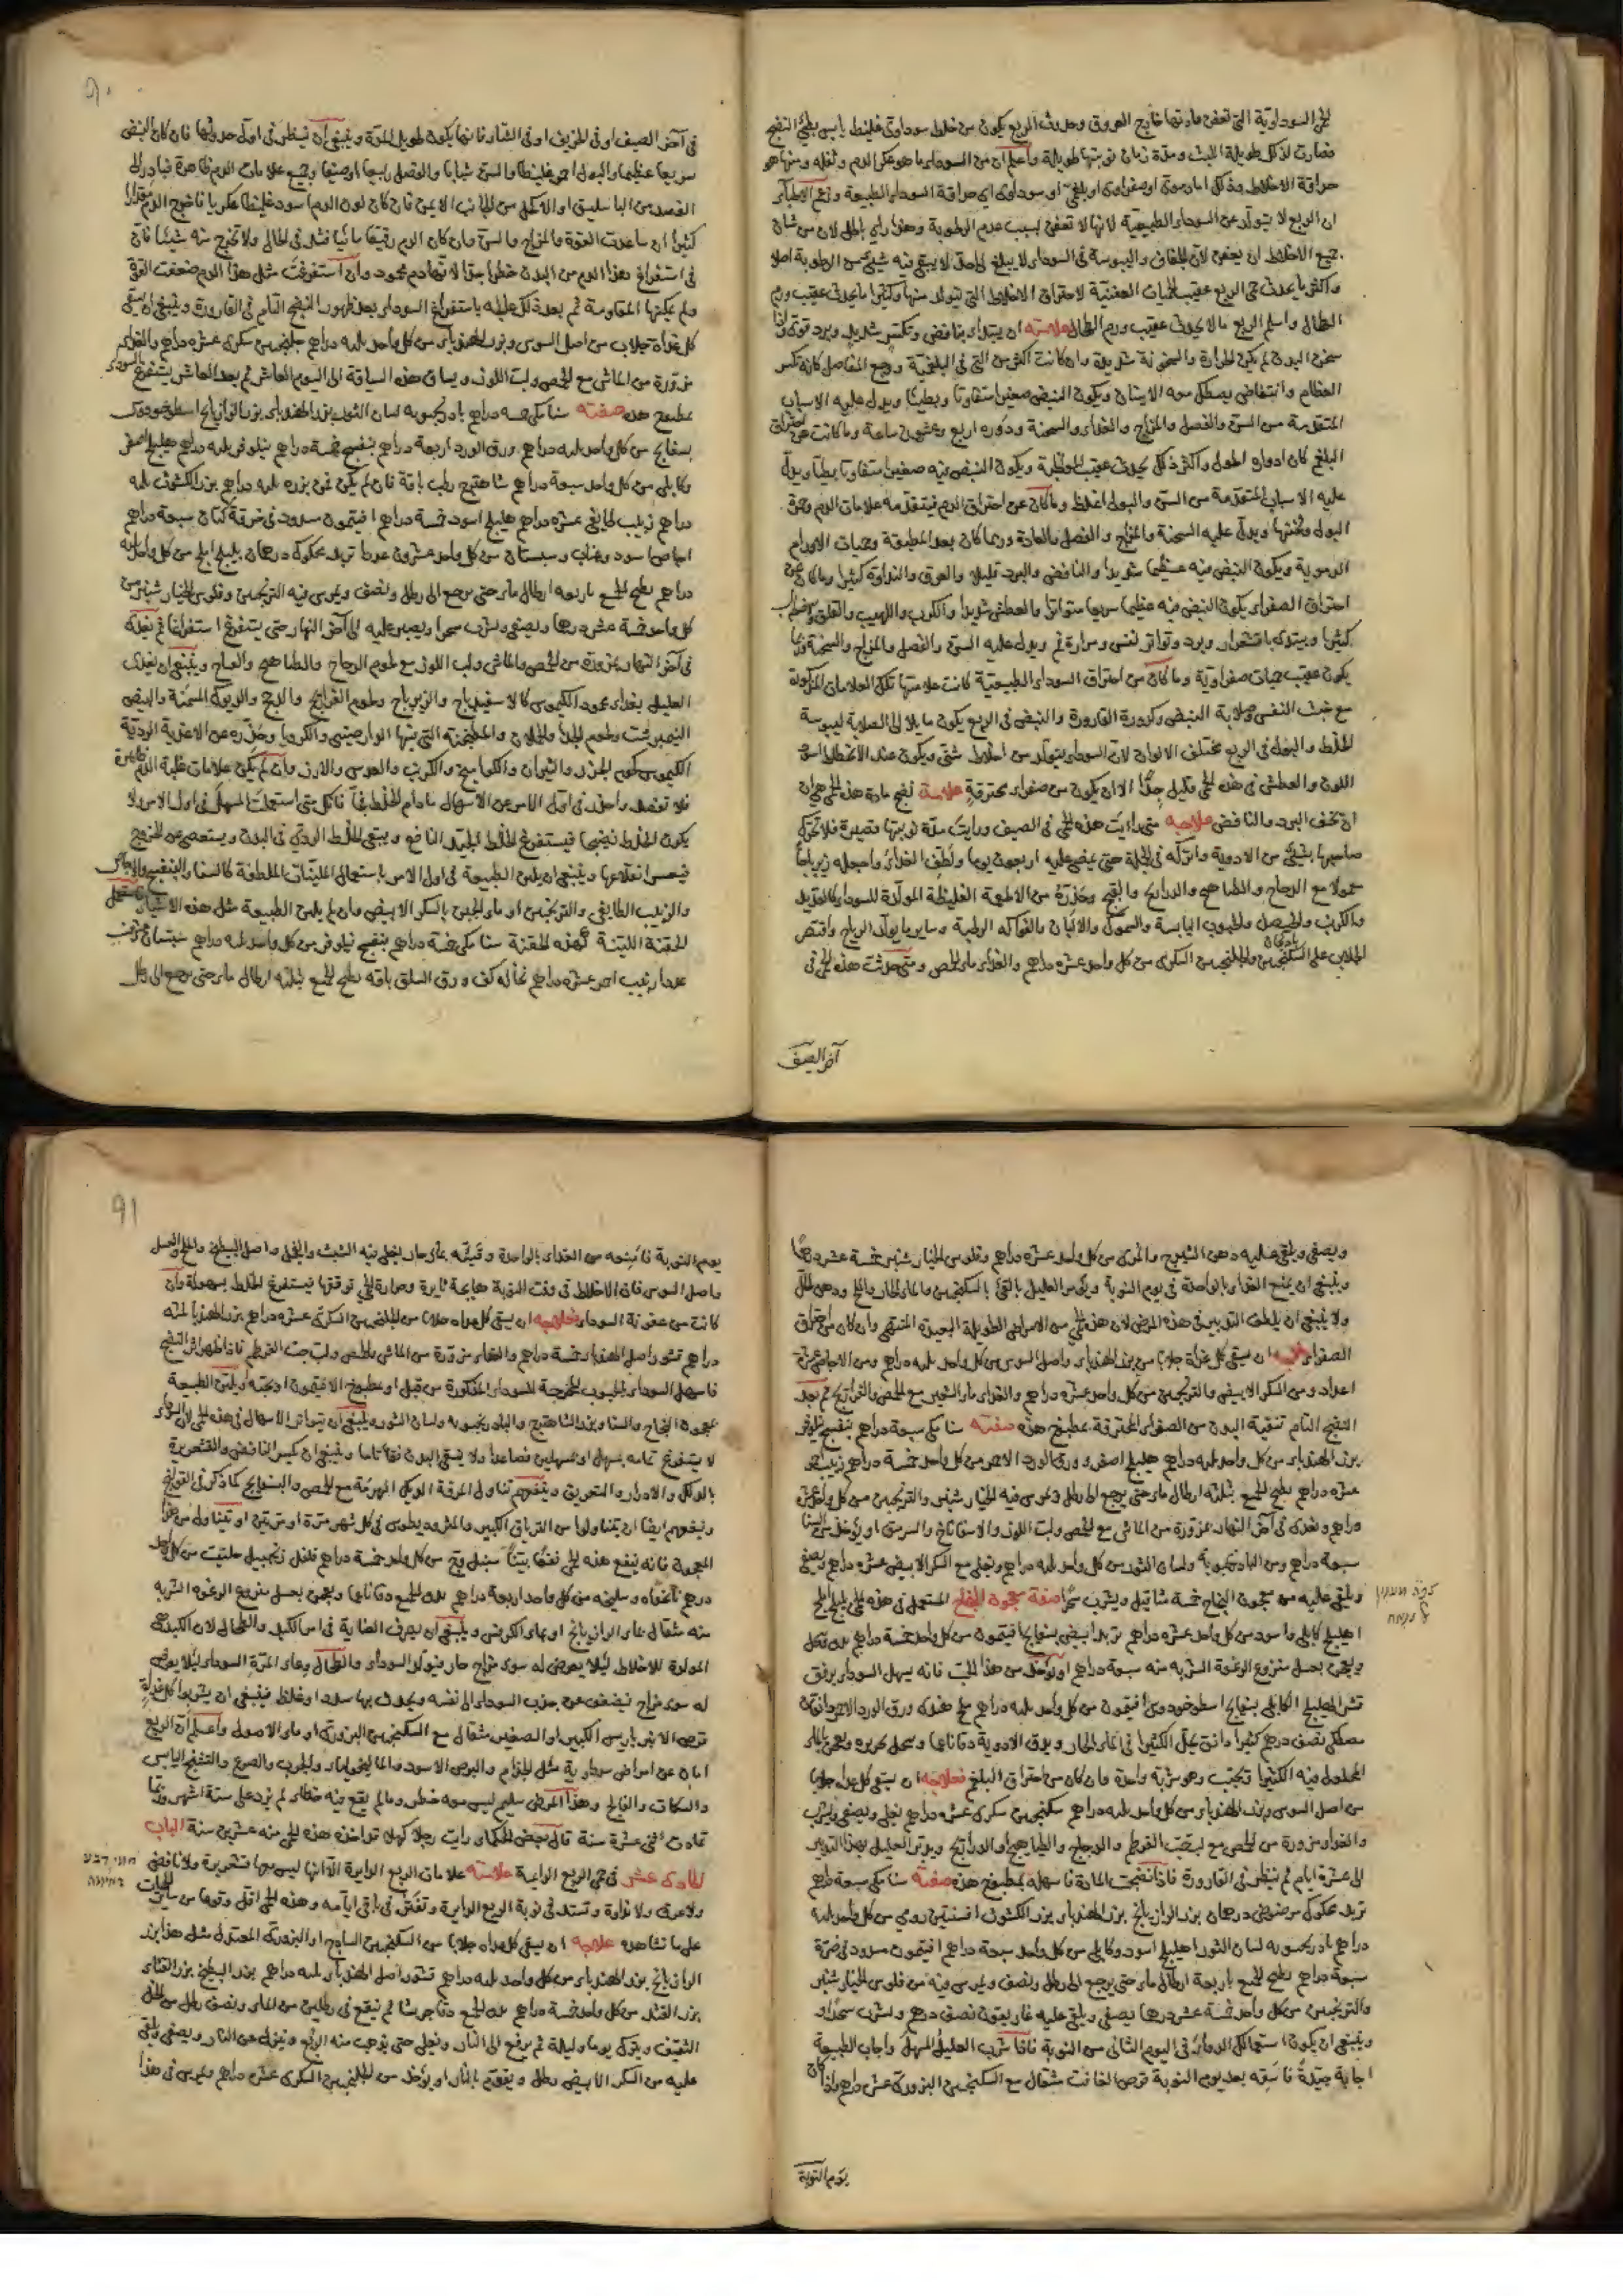 الحمى السوداوية التي تعفن مادتها خارج العروق وحدوث الربع يكون من خلط سوداوي غليظ يابس بطيء النضج
فصارت لذلك طويلة اللبث ومدة زمان نوبتها طويلة واعلم ان من السوداء ما هو عكر الدم وثفله ومنها هو
حراقة الاخلاط وذلك اما دموى او صفراوى او بلغمى او سوداوى اى حراقة السوداء الطبيعية وزعم الاطباء
ان الربع لا يتولد عن السوداء الطبيعية لانها لا تعفن بسبب عدم الرطوبة وهذا راي باطل لان من شان
جميع الاخلاط ان يعفن لان الجفاف واليبوسة في السوداء لا يبلغ الى حد لا يبقى فيه شيء من الرطوبة اصلا
واكثر ما يحدث حمى الربع عقيب الحميات العفنية لاحتراق الاخلاط التي تتولد منها وكثيرا ما يحدث عقيب ورم
الطحال واسلم الربع ما لا يحدث عقيب ورم الطحال علامته ان يبتدئ بنافض وتكسر شديد وبرد قوى واذا
سخن البدن لم يكن الحرارة والسخونة شديدة وان كانت اكثر من التي في البلغمية ووجع المفاصل كانه تكسر
العظام وانتفاض يصطك معه الاسنان ويكون النبض صغيرا متفاوتا وبطيئا ويدل عليه الاسباب
المتقدمة من السن والفصل والمزاج والغذاء والسحنة ودوره اربع وعشرون ساعة وما كانت عن احتراق
البلغم كان ادواره اطول واكثر ذلك يحدث عقيب المواظبة ويكون النبض فيه صغيرا متفاوتا بطيئا ويدل
عليه الاسباب المتقدمة من السن والبول اغلظ وما كان عن احتراق الدم فيتقدمه علامات الدم وحمرة
البول وثخنها ويدل عليه السحنة والمزاج والفصل والعادة وربما كان بعد المطبقة وحميات الاورام
الدموية ويكون النبض فيه عظيما شديدا والنافض والبرد قليلا والعرق والنداوة كثيرا وما كان عن
احتراق الصفراء يكون النبض فيه عظيما سريعا متواترا والعطش شديدا والكرب واللهيب والقلق واضطراب
كثيرا ويبتدئ باقشعرار وبرد وتواتر نفس ومرارة فم ويدل عليه السن والفصل والمزاج والسحنة وربما
يكون عقيب حميات صفراوية وما كان من احتراق السوداء الطبيعية كانت علامتها تلك العلامات المذكورة
مع خبث النفس وصلابة النبض وكدورة القارورة والنبض في الربع يكون مايلا الى الصلابة ليبوسة
الخلط والبول في الربع مختلف الالوان لان السوداء يتولد من اخلاط شتى ويكون عند الانحطاط اسود
اللون والعطش في هذه الحمى قليل جدا الا ان يكون من صفراء محترقة علامة نضج مادة هذه الحمى هي ان
ان تخف البرد والنافض علاجه متى رايت هذه الحمى في الصيف ورايت مدة نوبتها قصيرة فلا تحرك
صاحبها بشيء من الادوية واتركه في الجملة حتى يمضى عليه اربعون يوما ولطف الغذاء واجعله زيرباجا
معمولا مع الدجاج والطياهيج والدراريج والقبج وحذره من الاطعمة الغليظة المولدة للسوداء كالقديد
والكرنب والبصل والحبوب اليابسة والسموك والالبان والفواكه الرطبة وساير ما يولد الرياح واقتصر
الجلاب على السكنجبين والجلنجبين السكرى من كل واحد عشرة دراهم والغذاء ماء الحمص ومتى حدثت هذه الحمى في
آخر الصيف
٩٠
في آخر الصيف او في الخريف او في الشتاء فانها يكون طويل المدة وينبغي ان ينظر في اول حدوثها فان كان النبض
سريعا عظيما والبول احمر غليظا والسن شبابا والفصل ربيعا او صيفا وجميع علامات الدم ظاهرة فبادر الى
الفصد من الباسليق او الاكحل من الجانب الايمن فان كان لون الدم اسود غليظا عكريا فاخرج الدم مقدارا
كثيرا ان ساعدت القوة والمزاج والسن وان كان الدم رقيقا مائيا فشد في الحال ولا تخرج منه شيئا فان
في استفراغ هذا الدم من البدن خطرا جدا لانه دم محمود وان استفرغت مثل هذا الدم ضعفت القوى
ولم يمكنها المقاومة ثم بعد ذلك عليك باستفراغ السوداء بعد ظهور النضج التام في القارورة وينبغي ان يسقى
كل غداة جلاب من اصل السوس وبزر الهندباء من كل واحد ثلثه دراهم جلنجبين سكرى عشرة دراهم والغذاء
مزورة من الماش مع الحمص ولب اللوز ويساق هذه السياقة الى اليوم العاشر ثم بعد العاشر يستفرغ السوداء
بمطبوخ هذه صفته سنا مكى خمسه دراهم بادرنجبويه لسان الثور بزر الهندباء بزر الرازيانج اسطوخودوس
بسفايج من كل واحد ثلثه دراهم ورق الورد اربعة دراهم بنفسج خمسة دراهم نيلوفر ثلثه دراهم هليلج اصفر
وكابلى من كل واحد سبعة دراهم شاهترج رطب باقة فان لم يكن فمن بزره ثلثه دراهم بزر الكشوث ثلثه
دراهم زبيب طايفى عشرة دراهم هليلج اسود خمسة دراهم افيتمون مسرود في خرقة كتان سبعة دراهم
اجاص اسود وعناب وسبستان من كل واحد عشرون عددا تربد محكوك درهمان بليلج املج من كل واحد ثلثه
دراهم يطبخ الجميع باربعه ارطال ماء حتى يرجع الى رطل ونصف ويمرس فيه الترنجبين وفلوس الخيار شنبر من
كل واحد خمسة عشر درهما ويصفى ويشرب سحرا ويصبر عليه الى آخر النهار حتى يستفرغ استفراغا ثم يغذى
في آخر النهار بمزورة من الحمص والماش ولب اللوز مع لحوم الدجاج والطياهيج والدراج وينبغي ان يغذى
العليل بغذاء محمود الكيموس كالاسفيدباج والزيرباج ولحوم الفراريج والدجج والديوك المسمنة والبيض
النيمبرشت ولحوم الجداء والحملان والمطجنه التي فيها الدارصيني والكرويا وحذره عن الاغذية الردية
الكيموس كلحوم الجزر والثيران والكواميخ والكرنب والعدس والارز وان لم يكن علامات غلبة الدم ظاهرة
فلا تفصد واحذر في اول الامر عن الاسهال ما دام الخلط نيا فانك متى استعملت المسهل في اول الامر ولا
يكون الخلط نضيجا فيستفرغ الخلط الجيد النافع ويبقى الخلط الردي في البدن ويستعصى عن الخروج
فيعسر انقلاعها وينبغي ان يلين الطبيعة في اول الامر باستعمال الملينات الملطفة كالسنا والبنفسج والاجاص
والزبيب الطايفي والترنجبين او ماء الجبن بالسكر الابيض وان لم يلين الطبيعة مثل هذه الاشياء يستعمل
الحقنة اللينة كهذه الحقنة سنا مكى خمسة دراهم بنفسج نيلوفر من كل واحد ثلثه دراهم سبستان عشرين
عددا زبيب احمر عشرة دراهم نخالة كف ورق السلق باقه يطبخ الجميع بثلثه ارطال ماء حتى يرجع الى رطل
ويصفى ويلقى عليه دهن الشيرج والمرى من كل واحد عشرة دراهم وفلوس الخيار شنبر خمسة عشر درهما
وينبغي ان يمنع الغذاء بالواحدة في يوم النوبة ويؤمر العليل بالقئ بالسكنجبين والماء الحار والملح ودهن الحل
ولا ينبغي ان يلطف التدبير في هذه المرض لان هذه الحمى من الامراض الطويلة البعيدة المنتهى وان كان من احتراق
الصفراء ان يسقى كل غداة جلابا من بزر الهندباء واصل السوس من كل واحد ثلثه دراهم ومن الاجاص عشرة
اعداد ومن السكر الابيض والترنجبين من كل واحد عشرة دراهم والغذاء ماء الشعير مع الحمص والفراريج ثم بعد
النضج التام تنقية البدن من الصفراء المحترقة بمطبوخ هذه صفته سنا مكى سبعة دراهم بنفسج نيلوفر
بزر الهندباء من كل واحد ثلثه دراهم هليلج اصفر وورق الورد الاحمر من كل واحد خمسة دراهم زبيب
عشرة دراهم يطبخ الجميع بثلثه ارطال ماء حتى يرجع الى رطل ويمرس فيه الخيار شنبر والترنجبين من كل واحد عشرة
دراهم ويغذى في آخر النهار بمزورة من الماش مع الحمص ولب اللوز والاسفاناخ والسرمق او يؤخذ من السنا
سبعة دراهم ومن البادرنجبويه ولسان الثور من كل واحد ثلثه دراهم ويغلى مع السكر الابيض عشرة دراهم ويصفى
ويلقى عليه من معجون النجاح خمسة مثاقيل ويشرب سحرا صفة معجون النجاح المستعمل في هذه الحمى بليلج املج
اهليلج كابلى واسود من كل واحد عشرة دراهم تربد ابيض بسفايج افيتمون من كل واحد خمسة دراهم يدق وينخل
ويعجن بعسل منزوع الرغوة الشربه منه سبعة دراهم او يؤخذ من هذا الحب فانه يسهل السوداء برفق
قشر الهليلج الكابلى بسفايج اسطوخودوس افيتمون من كل واحد ثلثه دراهم ملح هندى ورق الورد الاحمر دانقان
مصطكى نصف درهم كثيرا دانق يحل الكثيرا في الماء الحار ويدق الادوية دقا ناعما وينخل بحريره ويعجن بالماء
المحلول فيه الكثيرا ويحبب وهو شربة واحدة وان كان من احتراق البلغم فعلاجه ان يسقى كل غداة جلابا
من اصل السوس وبزر الهندباء من كل واحد ثلثه دراهم سكنجبين سكرى عشرة دراهم يغلى ويصفى ويشرب
والغذاء مزورة من الحمص مع لب حب القرطم والدجاج والطياهيج او الدراريج ويدبر العليل بهذا التدبير
الى عشرة ايام ثم ينظر في القارورة فاذا نضجت المادة فاسهله بمطبوخ هذه صفته سنا مكى سبعة دراهم
تربد محكوك مرضوض درهمان بزر الرازيانج بزر الهندباء بزر الكشوث افسنتين رومى من كل واحد ثلثه
دراهم بادرنجبويه لسان الثور اهليلج اسود وكابلى من كل واحد سبعة دراهم افيتمون مسرود في خرقة
سبعة دراهم يطبخ الجميع باربعة ارطال ماء حتى يرجع الى رطل ونصف ويمرس فيه من فلوس الخيار شنبر
والترنجبين من كل واحد خمسة عشر درهما يصفى ويلقى عليه غاريقون نصف درهم ويشرب سحرا
وينبغي ان يكون استعمالك الدواء في اليوم الثاني من النوبة فاذا شرب العليل المسهل واجاب الطبيعة
اجابة جيدة فاسقه بعد يوم النوبة قرص الغافت مثقال مع السكنجبين البزورى عشرة دراهم واذا كان
يوم النوبة
٩١
يوم النوبة فامنعه من الغذاء بالواحدة وقيئه بماء حار يغلى فيه الشبث والفجل واصل البطيخ والملح والعسل
واصل السوس فان الاخلاط في وقت النوبة هايجة ثايرة وحرارة الحمى ترققها فيستفرغ الخلط بسهولة وان
كانت من عفونة السوداء فعلاجه ان يسقى كل غداة جلابا من الجلنجبين السكرى عشرة دراهم بزر الهندبا ثلثه
دراهم قشور اصل الهندباء خمسة دراهم والغذاء مزورة من الماش والحمص ولب حب القرطم فاذا ظهر اثر النضج
فاسهل السوداء بالحبوب المخرجة للسوداء المذكورة من قبل او بمطبوخ الافيتمون او بحبه ويلين الطبيعة
بمعجون النجاح والسنا وبزر الشاهترج والبادرنجبويه ولسان الثور وينبغي ان يتواتر الاسهال في هذه الحمى لان السوداء
لا يستفرغ تمامه بمسهل او مسهلين فصاعدا ولا ينقى البدن نقا تاما وينبغي ان يكسر النافض والقشعريرة
بالدلك والادرار والتعريق وينفعهم تناول المرقة الديوك الهرمة مع الحمص والبسفايج كما ذكر في القولنج
وينفعهم ايضا ان يتناولوا من الترياق الكبير والمثروديطوس في كل شهر مرة او مرتين او يتناول من هذا
المعجون فانه ينفع هذه الحمى نفعا بينا سنبل وج من كل واحد خمسة دراهم فلفل زنجبيل حلتيت من كل واحد
درهم نانخواه وسليخه من كل واحد اربعة دراهم يدق الجميع دقا ناعما ويعجن بعسل منزوع الرغوة الشربه
منه مثقال بماء الرازيانج او بماء الكرفس وينبغي ان يصرف العناية في امر الكبد والطحال لان الكبد هي
المولدة للاخلاط لئلا يعرض له سوء مزاج حار فيتولد السوداء والطحال وعاء المرة السوداء لئلا يعرض
له سوء مزاج فيضعف عن جذب السوداء الى نفسه ويحدث بها سددا وغلظ فينبغي ان يشربوا كل غداة
قرص الانبرباريس الكبير او الصغير مثقال مع السكنجبين البزورى او ماء الاصول واعلم ان الربع
امان عن امراض سوداوية مثل الجذام والبرص الاسود والماليخولياء والجرب والصرع والتشنج اليابس
والسكات والفالج وهذا المرض سليم ليس معه خطر وما لم يقع فيه خطاء لم يزد على ستة اشهر وربما
تمادت اثنى عشرة سنة قال بعض الحكماء رايت رجلا كهلا تواخذه هذه الحمى منه عشرين سنة الباب
الحادى عشر في حمى الربع الدايمة علامته علامات الربع الدايرة الا انها ليس معها قشعريرة ولا نافض
ولا عرق ولا نداوة وتستد في نوبة الربع الدايرة وتفتر في باقى ايامه وهذه الحمى اقل وقوعا من ساير الحميات
على ما تشاهده علاجه ان يسقى كل غداة جلابا من السكنجبين الساذج او البزورى المعتدل مثل هذا بزر
الرازيانج بزر الهندباء من كل واحد ثلثه دراهم قشور اصل الهندباء ثلثه دراهم بزر البطيخ بزر القثاء
بزر القثد من كل واحد خمسة دراهم يدق الجميع دقا جريشا ثم ينقع في رطلين من الماء ونصف رطل من الخل
الثقيف ويترك يوما وليلة ثم يرفع الى النار ويغلى حتى يذهب منه الربع وينزل عن النار ويصفى ويلقى
عليه من السكر الابيض رطل ويقوم بالنار او يؤخذ من الجلنجبين السكرى عشرة دراهم ويمرس في هذا